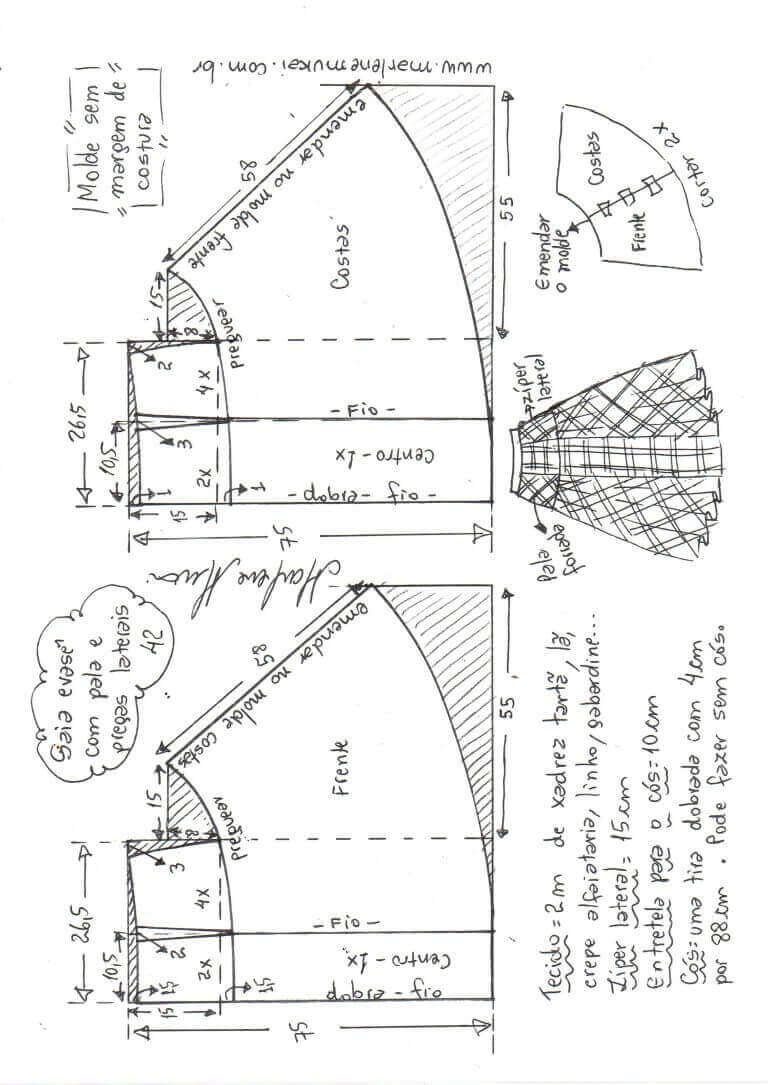 Saia evasê
com pala e
pregas laterais
42
|Molde sem|
"margem de"
|costura|
www.marlenemukai.com.br
Marlene Mukai
26,5
10,5
15
1,5
1,5
2
3
15
8
2x
4x
preguear
75
58
emendar no molde costas
Frente
- Fio -
Centro - 1x
dobra - fio
55
26,5
10,5
15
1
1
3
2
15
8
2x
4x
preguear
75
58
emendar no molde frente
Costas
- Fio -
Centro - 1x
- dobra - fio -
55
Tecido = 2m de xadrez tartã, lã,
crepe alfaiataria, linho, gabardine...
Zíper lateral = 15cm
Entretela para o cós = 10cm
Cós = uma tira dobrada com 4cm
por 88cm. Pode fazer sem cós.
pala
forrada
zíper
lateral
Emendar
o molde
Costas
Frente
Cortar 2x